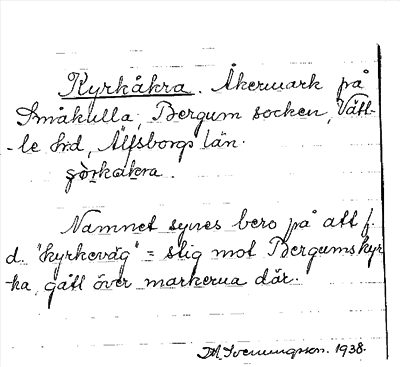 Kyrkåkra. Åkermark på
Småkulla, Bergum socken, Vätt-
-le hrd, Älfsborgs län.
Namnet synes bero på att f.
d. "kyrkeväg" = stig mot Bergumskyr
-ka, gått över markerna där.
Svenningson. 1938.